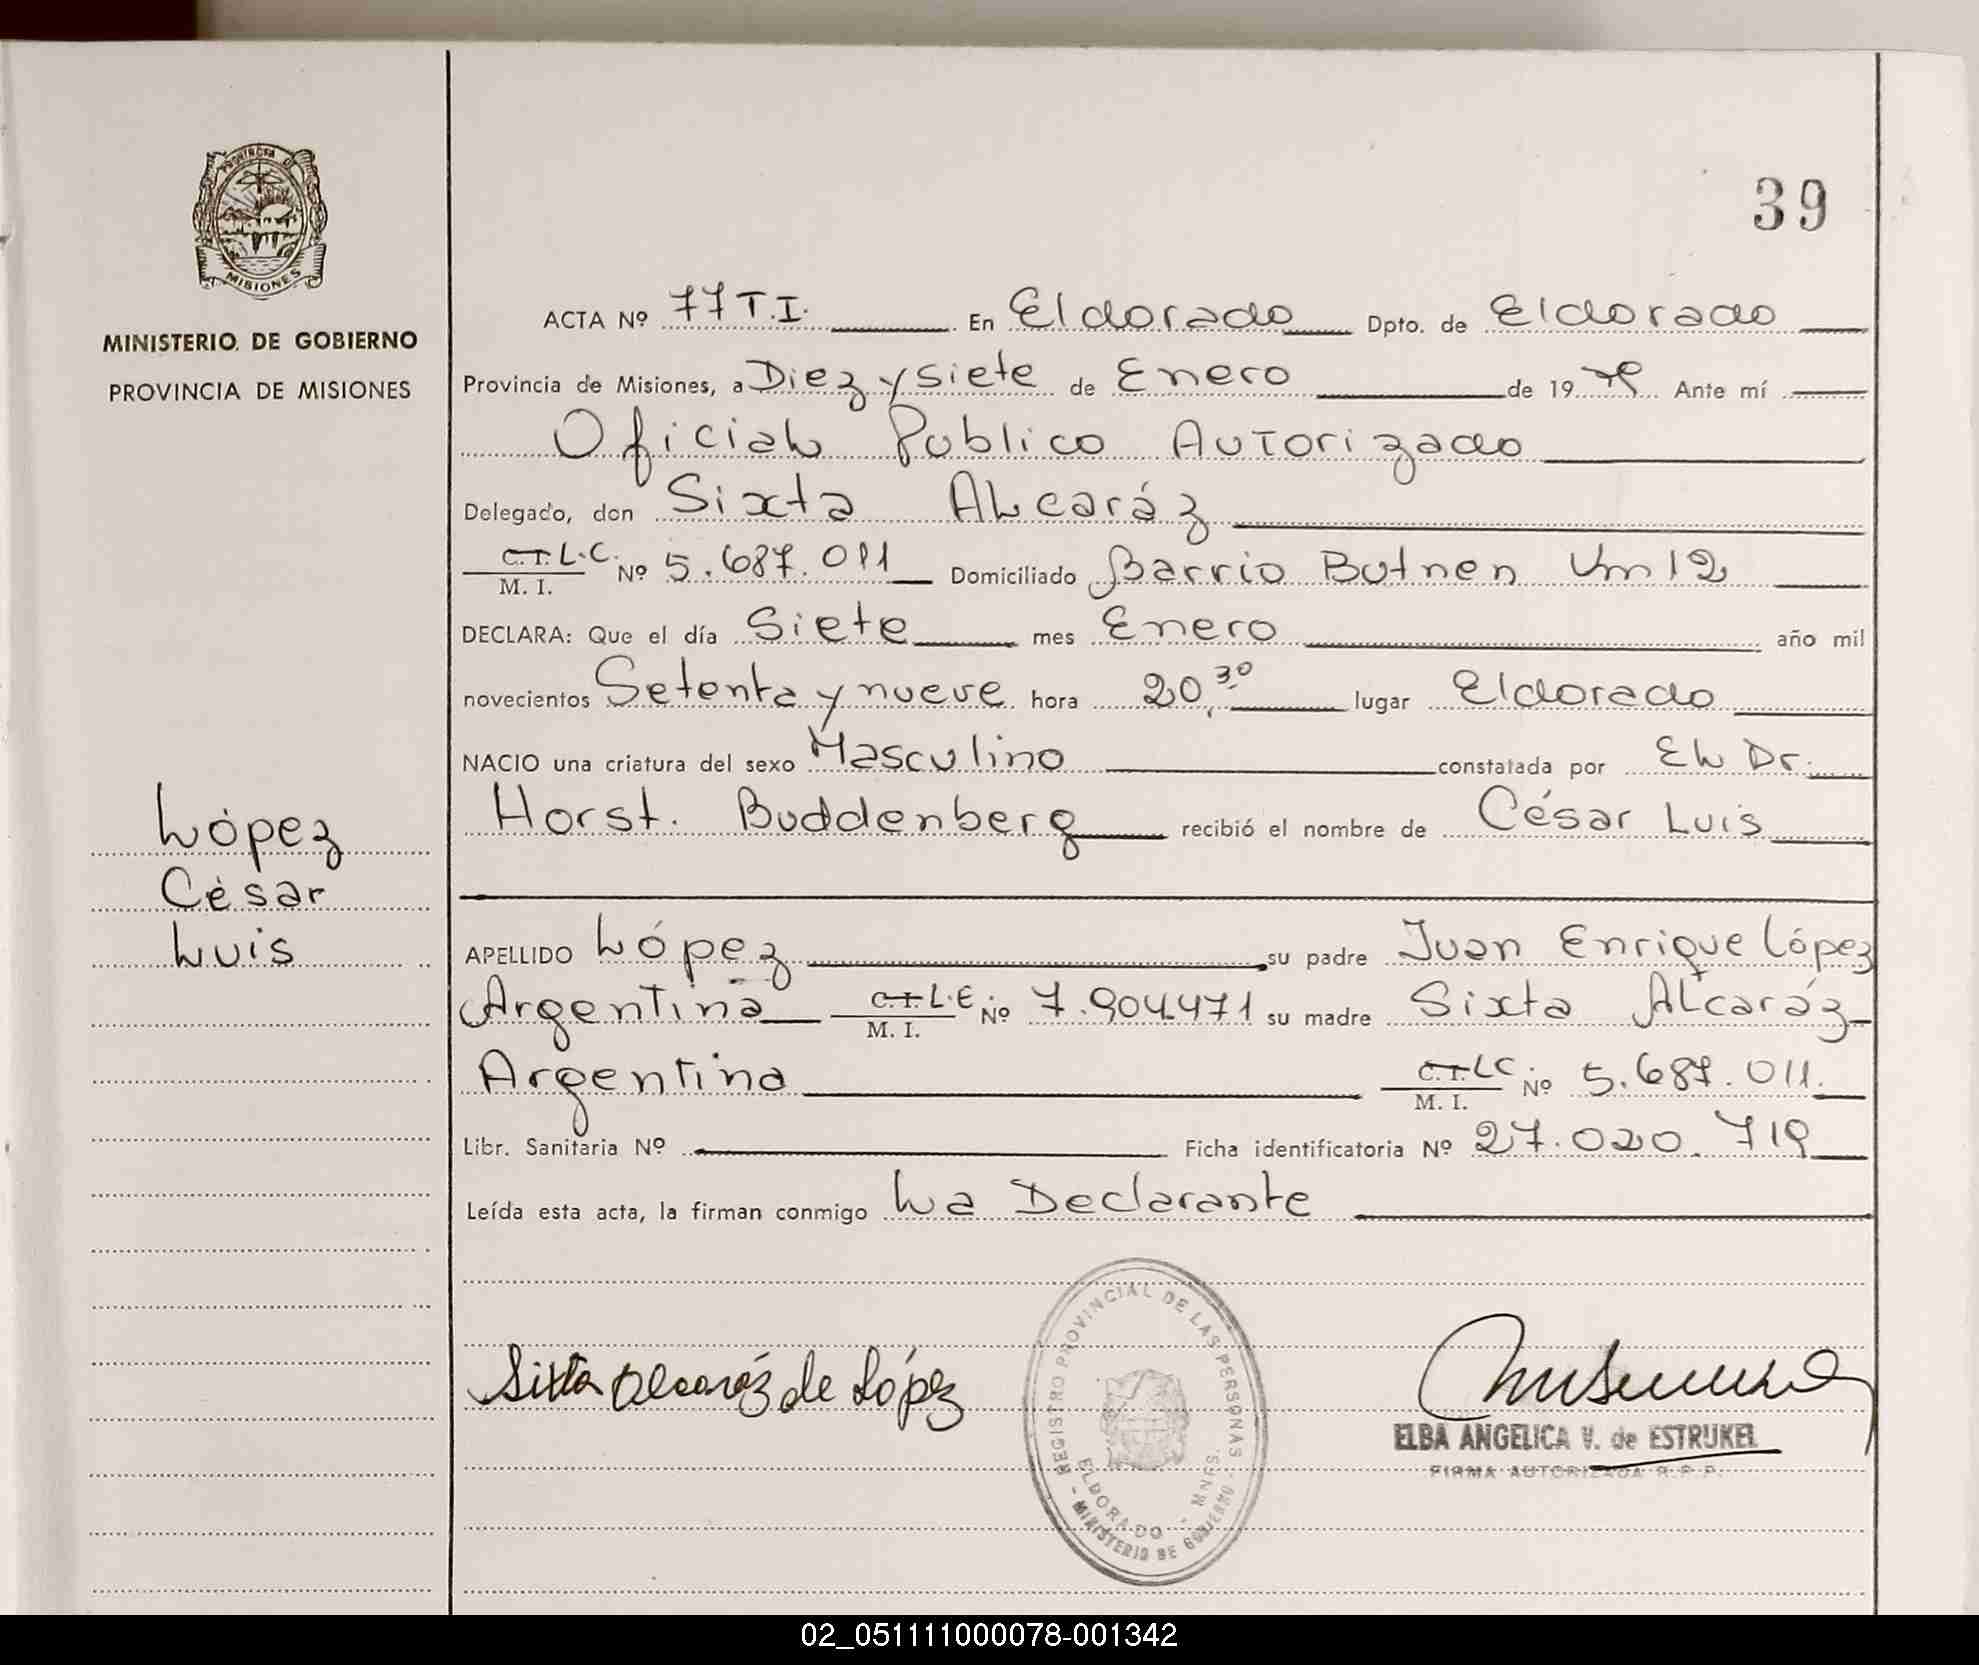 PROVINCIA D
MISIONES
MINISTERIO DE GOBIERNO
PROVINCIA DE MISIONES
López
César
Luis
39
ACTA Nº 77 T.I. En Eldorado Dpto. de Eldorado
Provincia de Misiones, a Diez y siete de Enero de 1979 Ante mí
Oficial Publico Autorizado
Delegado, don Sixta Alcaráz
C.I. L.C. Nº 5.687.011 Domiciliado Barrio Butnen Km 12
M. I.
DECLARA: Que el día Siete mes Enero año mil
novecientos Setenta y nueve hora 20,30 lugar Eldorado
NACIO una criatura del sexo Masculino constatada por El Dr.
Horst. Buddenberg recibió el nombre de César Luis
APELLIDO López su padre Juan Enrique López
Argentina C.I. L.E. Nº 7.904.471 su madre Sixta Alcaráz
M. I.
Argentina C.I. LC Nº 5.687.011.
M. I.
Libr. Sanitaria Nº Ficha identificatoria Nº 27.020.719
Leída esta acta, la firman conmigo La Declarante
Sixta Alcaráz de López
REGISTRO PROVINCIAL DE LAS PERSONAS
ELDORADO - MNES.
- MINISTERIO DE GOBIERNO -
ELBA ANGELICA V. de ESTRUKEL
FIRMA AUTORIZADA R. P. P.
02_051111000078-001342